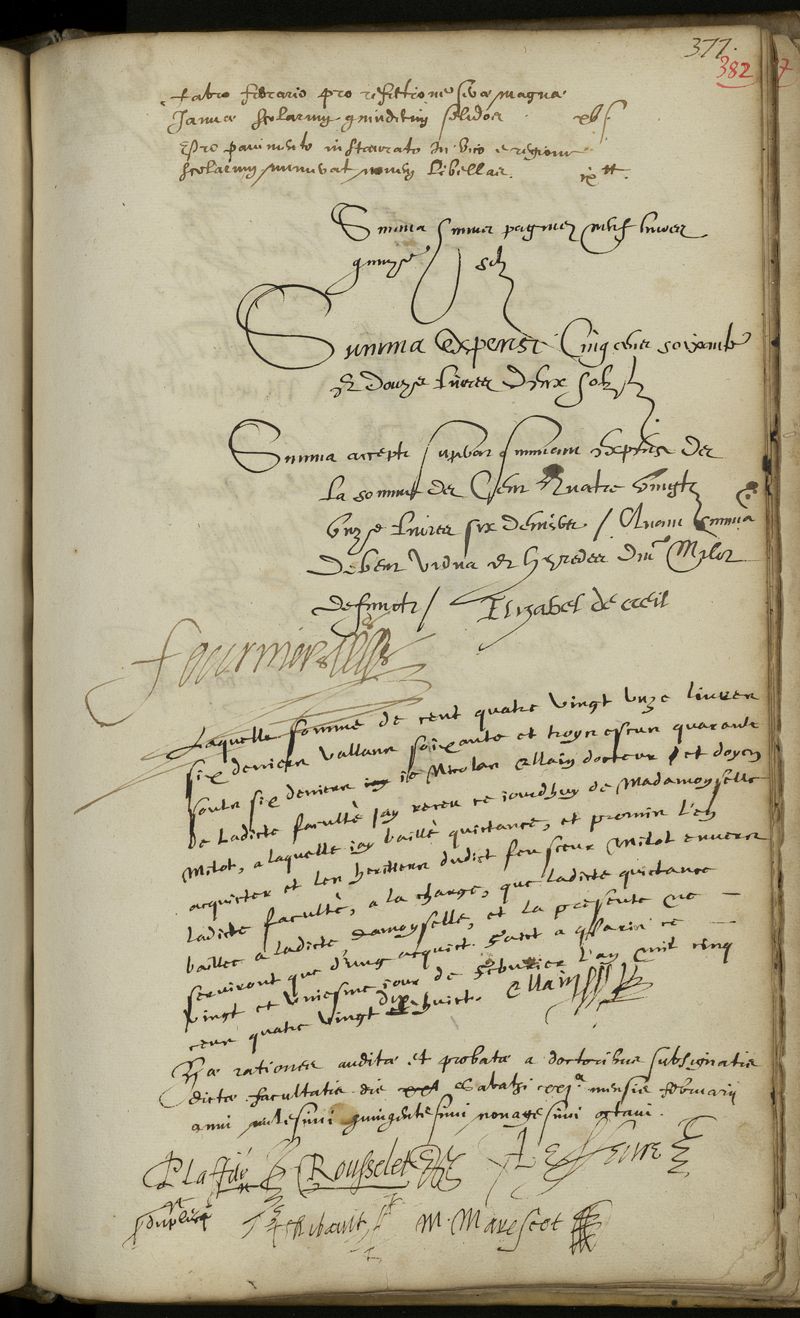 377.
382
Fabro ferrario pro refectione seræ magnæ
Januæ scolarum quindecim solidos xv s
Pro pavimento instaurato in vico e regione
scolarum numerat novem libellas. ix tt.
Summa summa paginæ neuf livres
quinze solz
Summa Expensi Cinq cens soixante
Et douze livres deux solz
Summa accepti superat summam Expensi de
la somme de Cent Quatre vingtz
unze livres six deniers / Quam summa
Debent vidua et hæredes Dni Milot
defuncti / Elizabel de creil
fournier
Laquelle somme de cent quatre vingt unze livres
six deniers vallans soixante et troys escus quarante
soulz six deniers ie Nicolas Ellain docteur et doyen
de Ladicte faculte iay receu ce iourdhuy de Madamoyselle
Milot, a laquelle iay baille quictance, et promis l'en
acquicter et les heritiers dudict feu sieur Milot envers
ladicte faculté, a la charge, que ladicte quictance
baillee a ladicte damoyselle, et la presente ne
serviront que d'ung acquict. Faict a Paris ce
vingt et uniesme iour de Febvrier l'an mil cinq
cens quatre vingt dix huict. Ellain
Hæ rationes auditæ et probatæ a doctoribus subsignatis
dictæ facultatis die sabathi xxj.a mensis februarij
anni milesimi quingentesimi nonagesimi octavi.
Rousselet
Thibault M. Marescot